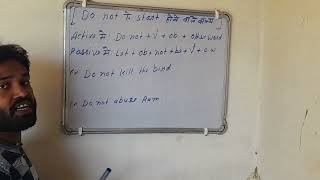 [ Do not से start होने वाले वाक्य ]
Active में Do not + V + ob + other word
Passive में Let + ob + not + be + V + o.w
Do not kill the bird
Do not abuse Ram